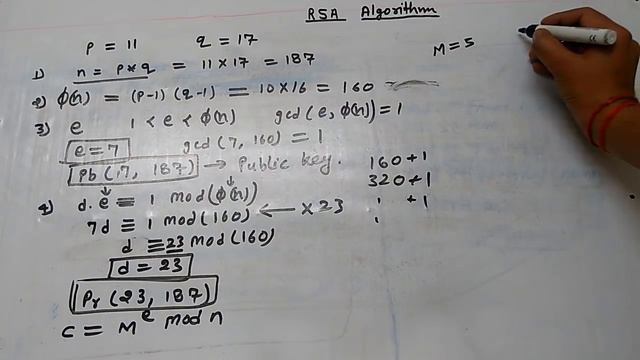 RSA Algorithm
P = 11 q = 17
M = 5
1) n = P * q = 11 × 17 = 187
2) φ(n) = (P-1) (q-1) = 10 × 16 = 160
3) e 1 < e < φ(n) gcd(e, φ(n)) = 1
e = 7 gcd (7, 160) = 1
Pb (7, 187) → Public key.
4) d.e ≡ 1 mod(φ(n))
7d ≡ 1 mod(160) ← × 23
d ≡ 23 mod(160)
d = 23
Pr (23, 187)
C = M^e mod n
160 + 1
320 + 1
+ 1